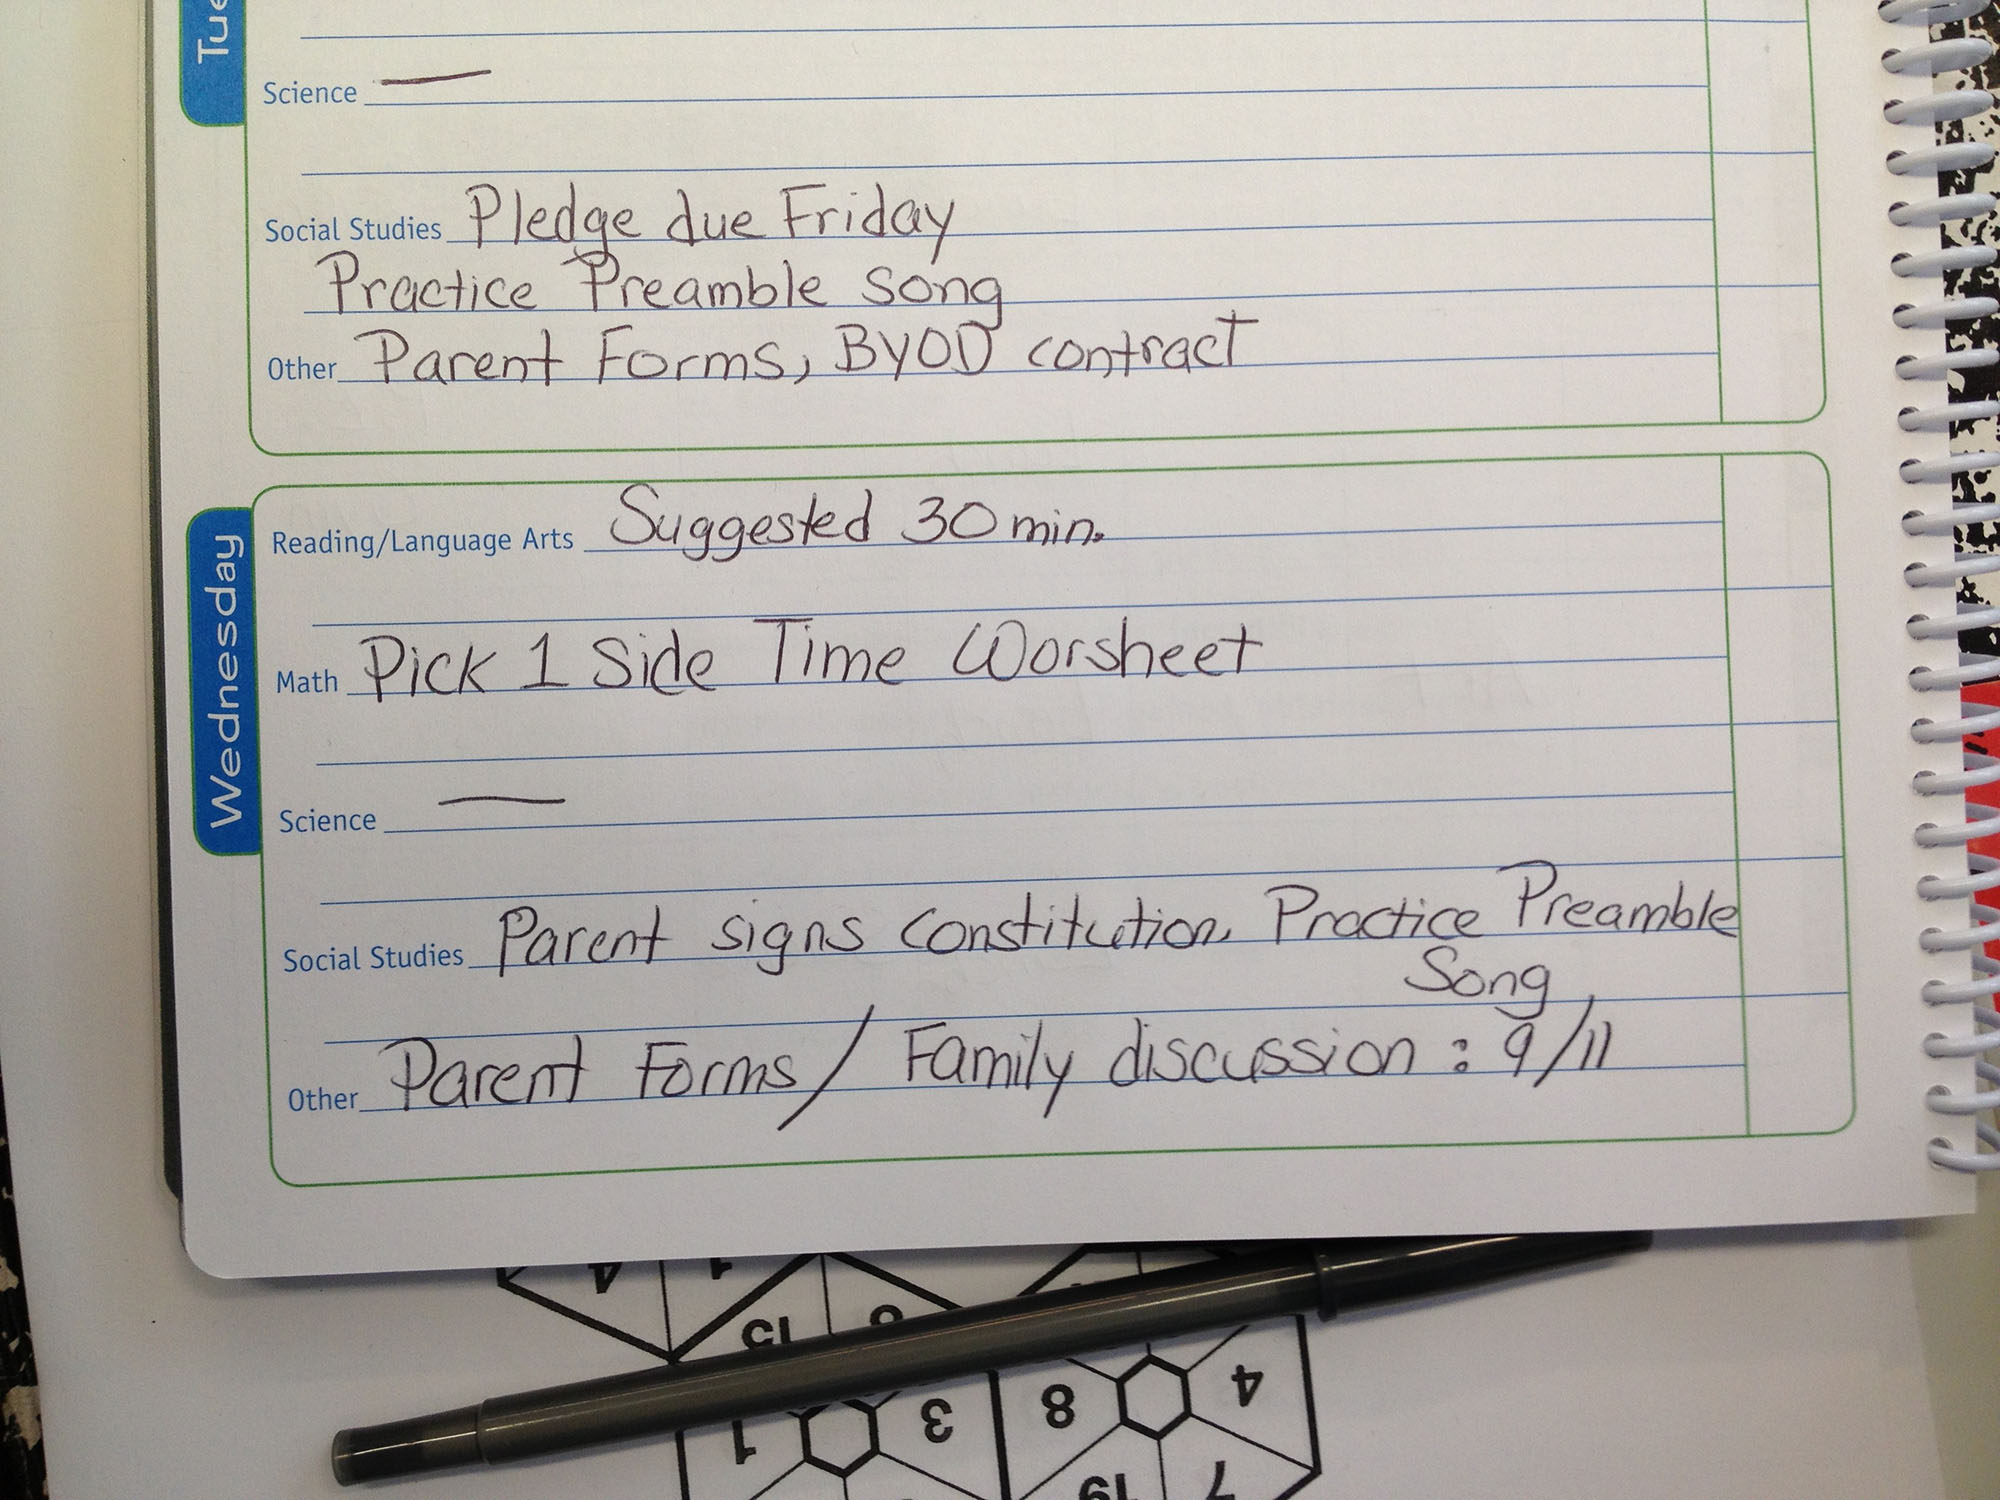 Tue
Science —
Social Studies Pledge due Friday
Practice Preamble song
Other Parent Forms, BYOD contract
Wednesday
Reading/Language Arts Suggested 30 min.
Math Pick 1 Side Time Worsheet
Science —
Social Studies Parent signs constitution, Practice Preamble
Song
Other Parent Forms / Family discussion : 9/11
4 1
15
1 3 8 4
19 7